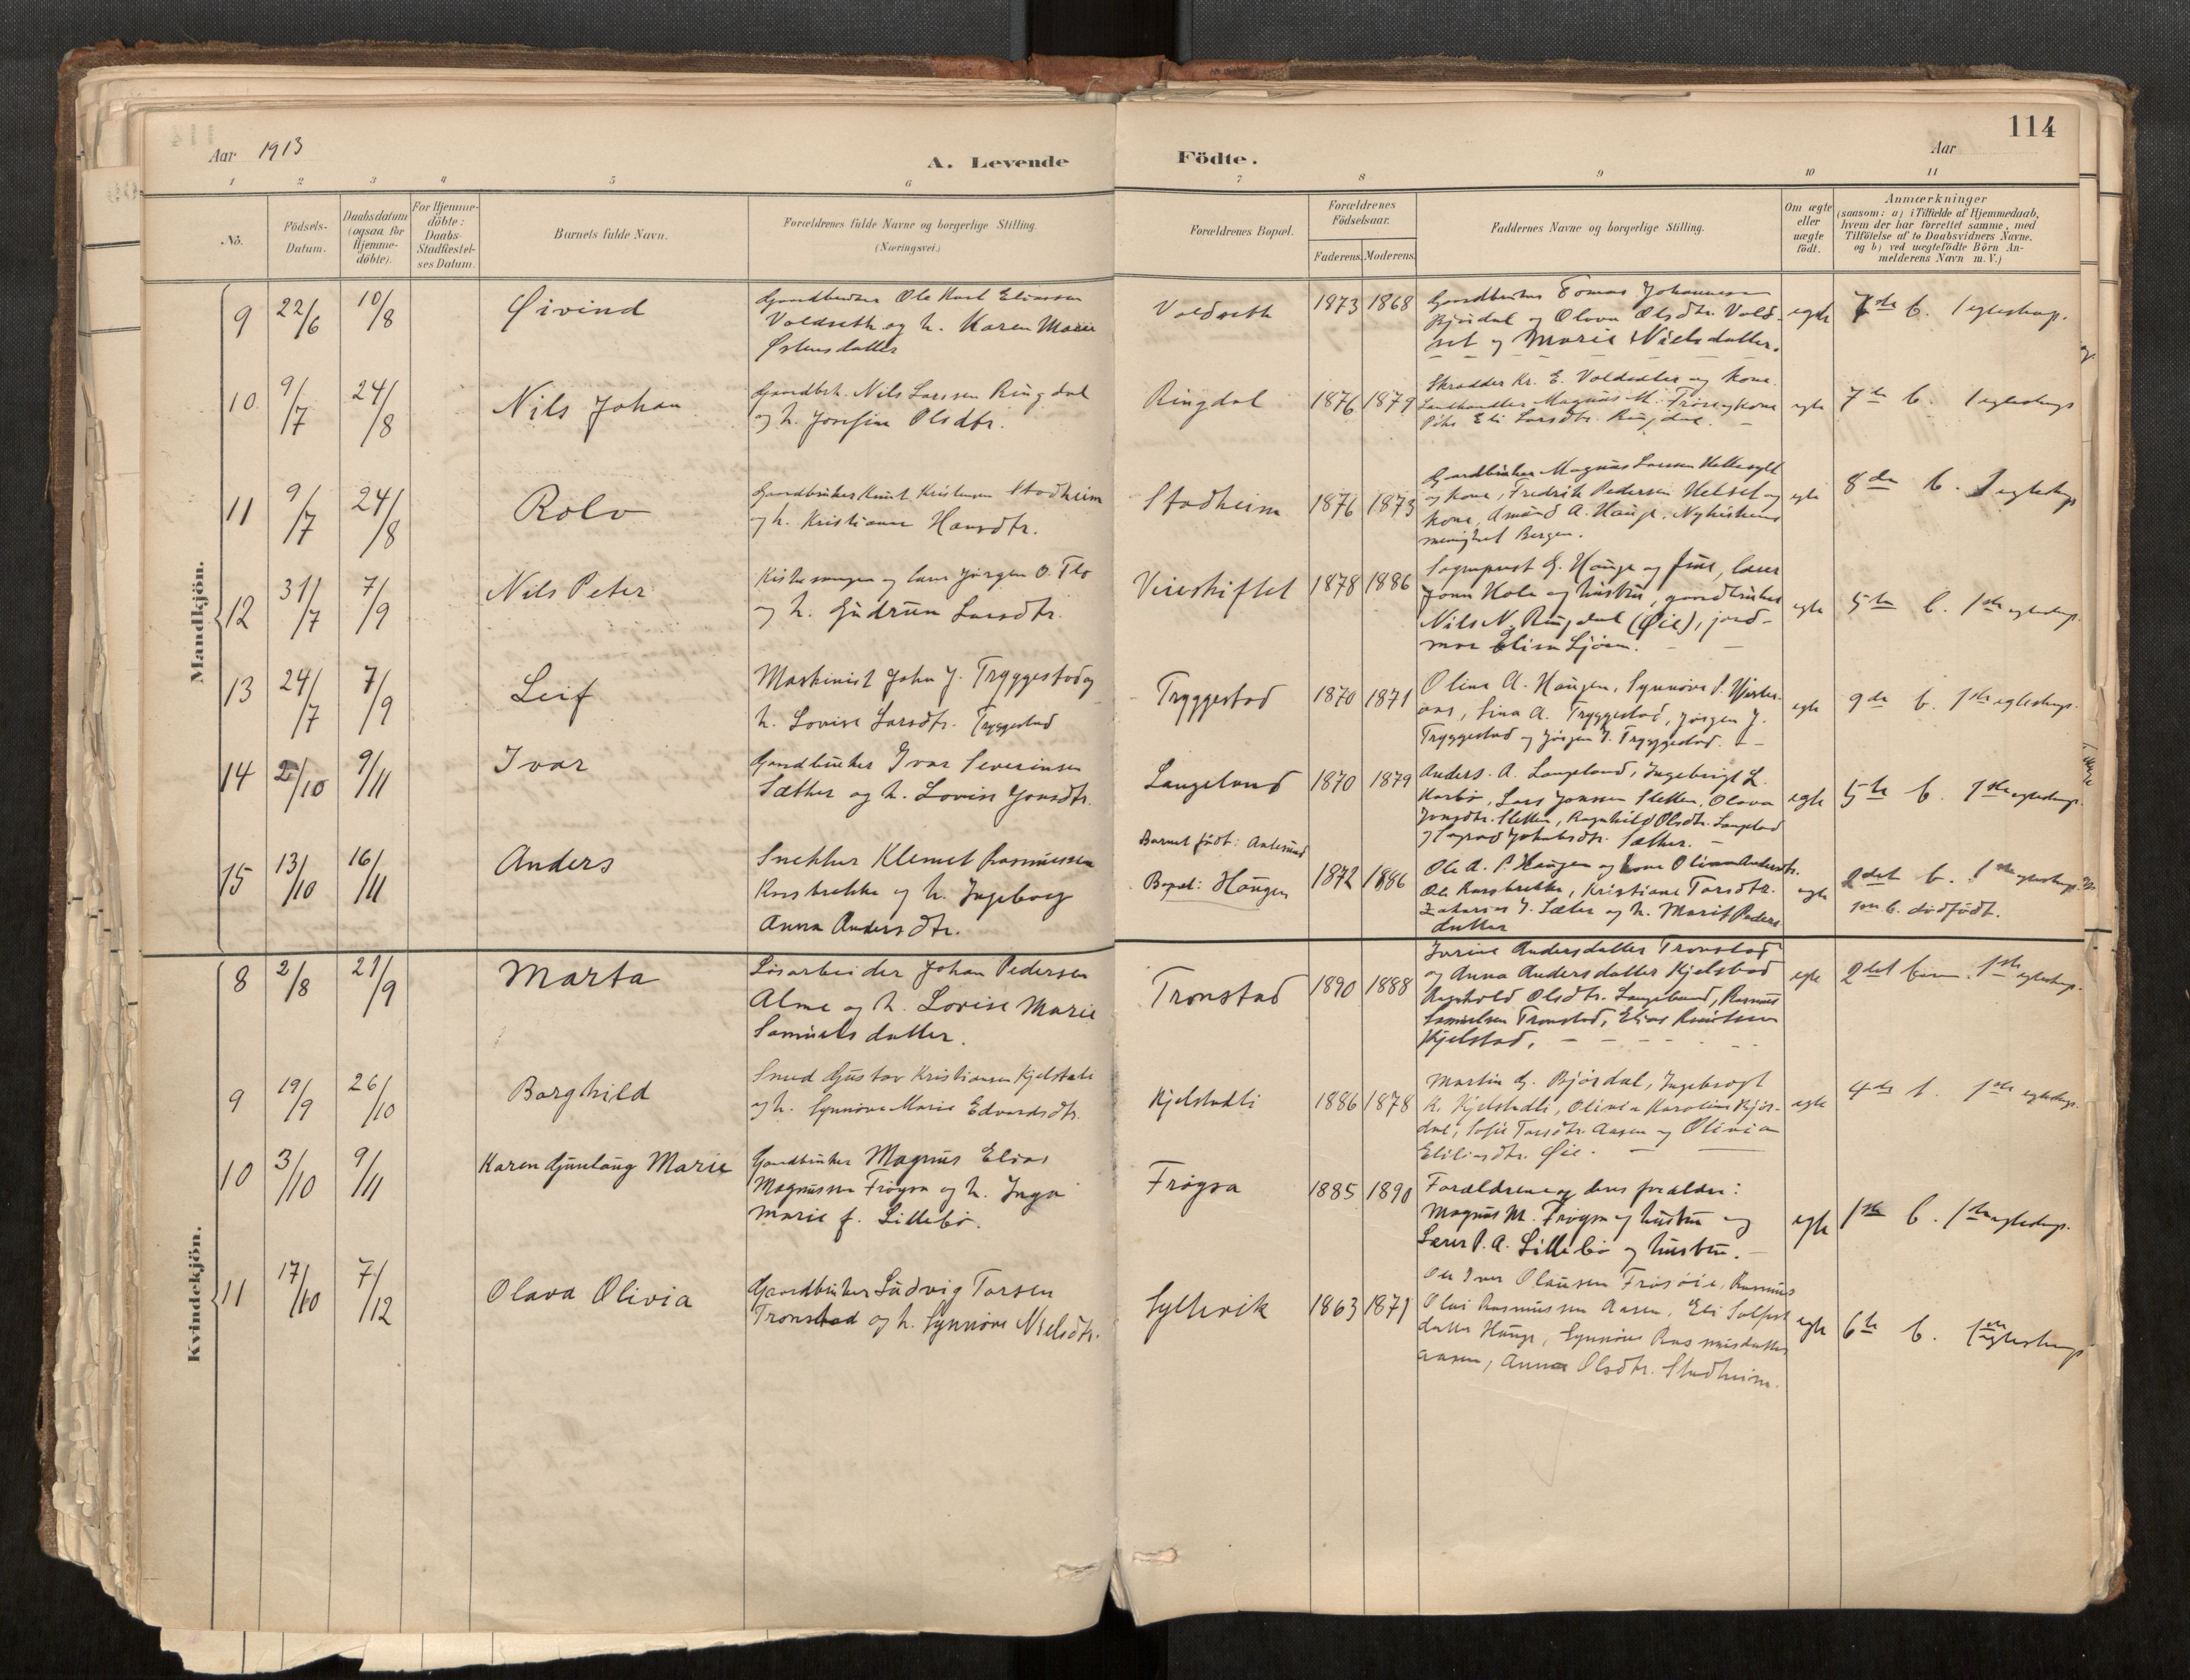 114
Aar 1913
A. Levende
Födte.
Aar
1 2 3 4 5 6 7 8 9 10 11
No.
Födsels-
Datum.
Daabsdatum
(ogsaa for
Hjemme-
döbte).
For Hjemme-
döbte:
Daabs-
Stadfæstel-
ses Datum.
Barnets fulde Navn.
Forældrenes fulde Navne og borgerlige Stilling.
(Næringsvei.)
Forældrenes Bopæl.
Forældrenes
Födselsaar.
Faderens. Moderens.
Faddernes Navne og borgerlige Stilling.
Om ægte
eller
uægte
födt.
Anmærkninger
(saasom: a) i Tilfælde af Hjemmedaab,
hvem der har forrettet samme, med
Tilföielse af to Daabsvidners Navne,
og b) ved uægtefödte Börn An-
melderens Navn m. V.)
Mandkjön.
9 22/6 10/8 Øivind
Gaardbruker Ole Karl Eliassen
Voldseth og h. Karen Marie
Østensdatter
Voldseth 1873 1868
Gaardbruker Tomas Johannessen
Bjørdal og Olava Olsdtr. Vold-
set og Marie Nielsdatter.
egte
7de b. 1 egteskap.
10 9/7 24/8 Nils Johan
Gaardbrk. Nils Larssen Ringdal
og h. Josefine Olsdtr.
Ringdal 1876 1879
Skrædder Kr. E. Voldsdter og kone.
Landhandler Magnus M. Frøisa og kone
Pike Eli Larsdtr. Ringdal.
egte
7de b. 1 egteskap
11 9/7 24/8 Rolv
Gaardbruker Knut Kristensen Stadheim
og h. Kristianne Hansdtr.
Stadheim 1876 1873
Gaardbruker Magnus Larssen Hellesylt
og kone, Fredrik Pedersen Helset og
kone, Amund A. Hauge, Nykirkens
menighet Bergen.
egte
8de b. 1 egteskap
12 31/7 7/9 Nils Peter
Kirkesanger og lærer Jørgen O. Flo
og h. Gudrun Larsdtr.
Vereskiftet 1878 1886
Sogneprest G. Hauge og frue, lærer
Jonn Hole og hustru, gaardbruker
Nils N. Ringdal (Øie), jord-
mor Elisa Ljøen.
egte
5te b. 1ste egteskap.
13 24/7 7/9 Leif
Maskinist John J. Tryggestad og
h. Lovise Larsdtr. Tryggestad
Tryggestad 1870 1871
Olina A. Haugen, Synnøve
Sina A. Tryggestad, Jørgen J.
Tryggestad og Jørgen J. Tryggestad.
egte
9de b. 1ste egteskap.
14 2/10 9/11 Ivar
Gaardbruker Ivar Severinsen
Sæther og h. Lovise Jonsdtr.
Langeland 1870 1879
Anders A. Langeland, Ingebrigt L.
Korbø, Lars Jonssen Sletten, Olava
Jonsdtr. Sletten, Ragnhild Olsdtr. Langeland
og Jakobsdtr. Sæther.
egte
5te b. 1ste egteskap.
15 13/10 16/11 Anders
Snekker Klemet Rasmussen
Korsbrekke og h. Ingeborg
Anna Andersdtr.
Barnet født: Aalesund
Bopæl: Haugen 1872 1886
Ole A. P. Haugen og kone Olina Andersdtr.
Ole Korsbrekke, Kristiane Tarsdtr.
Zakarias J. Sæter og h. Marit Peders
datter
egte
2det b. 1ste egteskap.
1ste b. dødfødt.
Kvindekjön.
8 2/8 21/9 Marta
Løsarbeider Johan Pedersen
Alme og h. Lovise Marie
Samuelsdatter.
Tronstad 1890 1888
Jørine Andersdatter Tronstad
og Anna Andersdatter Kjelstad
Ragnhild Olsdtr. Langeland, Rasmus
Samuelsen Tronstad, Elias Knutsen
Kjelstad.
egte
2det barn. 1ste egteskap.
9 19/9 26/10 Borghild
Smed Gustav Kristiansen Kjelstadli
og h. Synnøve Marie Edvardsdtr.
Kjelstadli 1886 1878
Martin G. Bjørdal, Ingebrigt
K. Kjelstadli, Olivia Karoline Bjør-
dal, Sofie Tarsdtr. Aasen og Olivia
Øie.
egte
4de b. 1ste egteskap.
10 3/10 9/11 Karen Gunlaug Marie
Gaardbruker Magnus Elias
Magnussen Frøysa og h. Inga
Marie f. Lillebø.
Frøysa 1885 1890
Forældrene og deres forældre:
Magnus M. Frøysa og hustru og
Lærer P. A. Lillebø og hustru.
egte
1ste b. 1ste egteskap.
11 17/10 7/12 Olava Olivia
Gaardbruker Ludvig Tarsen
Tronstad og h. Synnøve Nielsdtr.
Syltevik 1863 1871
Ole Iver Olausen Frøsøie, Rasmus
Olai Rasmussen Aasen, Eli Salfest
datter Hauge, Synnøve Rasmusdatter
Aasen, Anna Olsdtr. Stadheim.
egte
6te b. 1ste egteskap